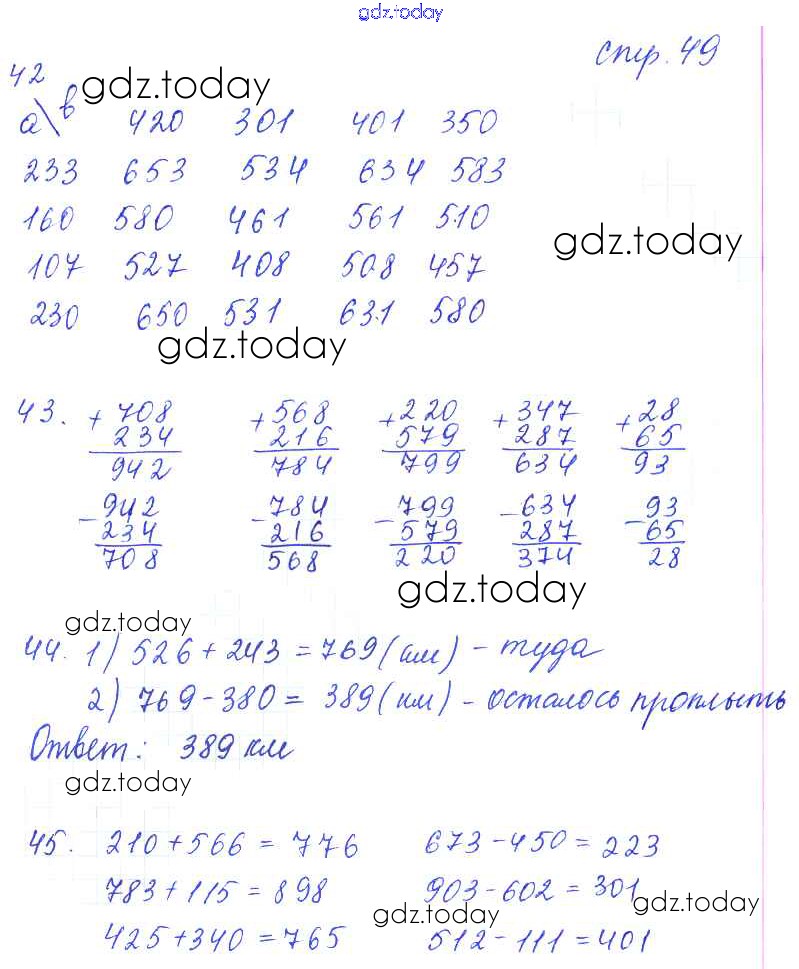 gdz.today
стр. 49
42
gdz.today
a\в 420 301 401 350
233 653 534 634 583
160 580 461 561 510
gdz.today
107 527 408 508 457
230 650 531 631 580
gdz.today
43. +708 +568 +220 +347 +28
234 216 579 287 65
942 784 799 634 93
-942 -784 -799 -634 -93
234 216 579 287 65
708 568 220 374 28
gdz.today
gdz.today
44. 1) 526 + 243 = 769 (км) - туда
2) 769 - 380 = 389 (км) - осталось проплыть
Ответ: 389 км
gdz.today
45. 210 + 566 = 776 673 - 450 = 223
783 + 115 = 898 903 - 602 = 301
gdz.today
gdz.today
425 + 340 = 765 512 - 111 = 401